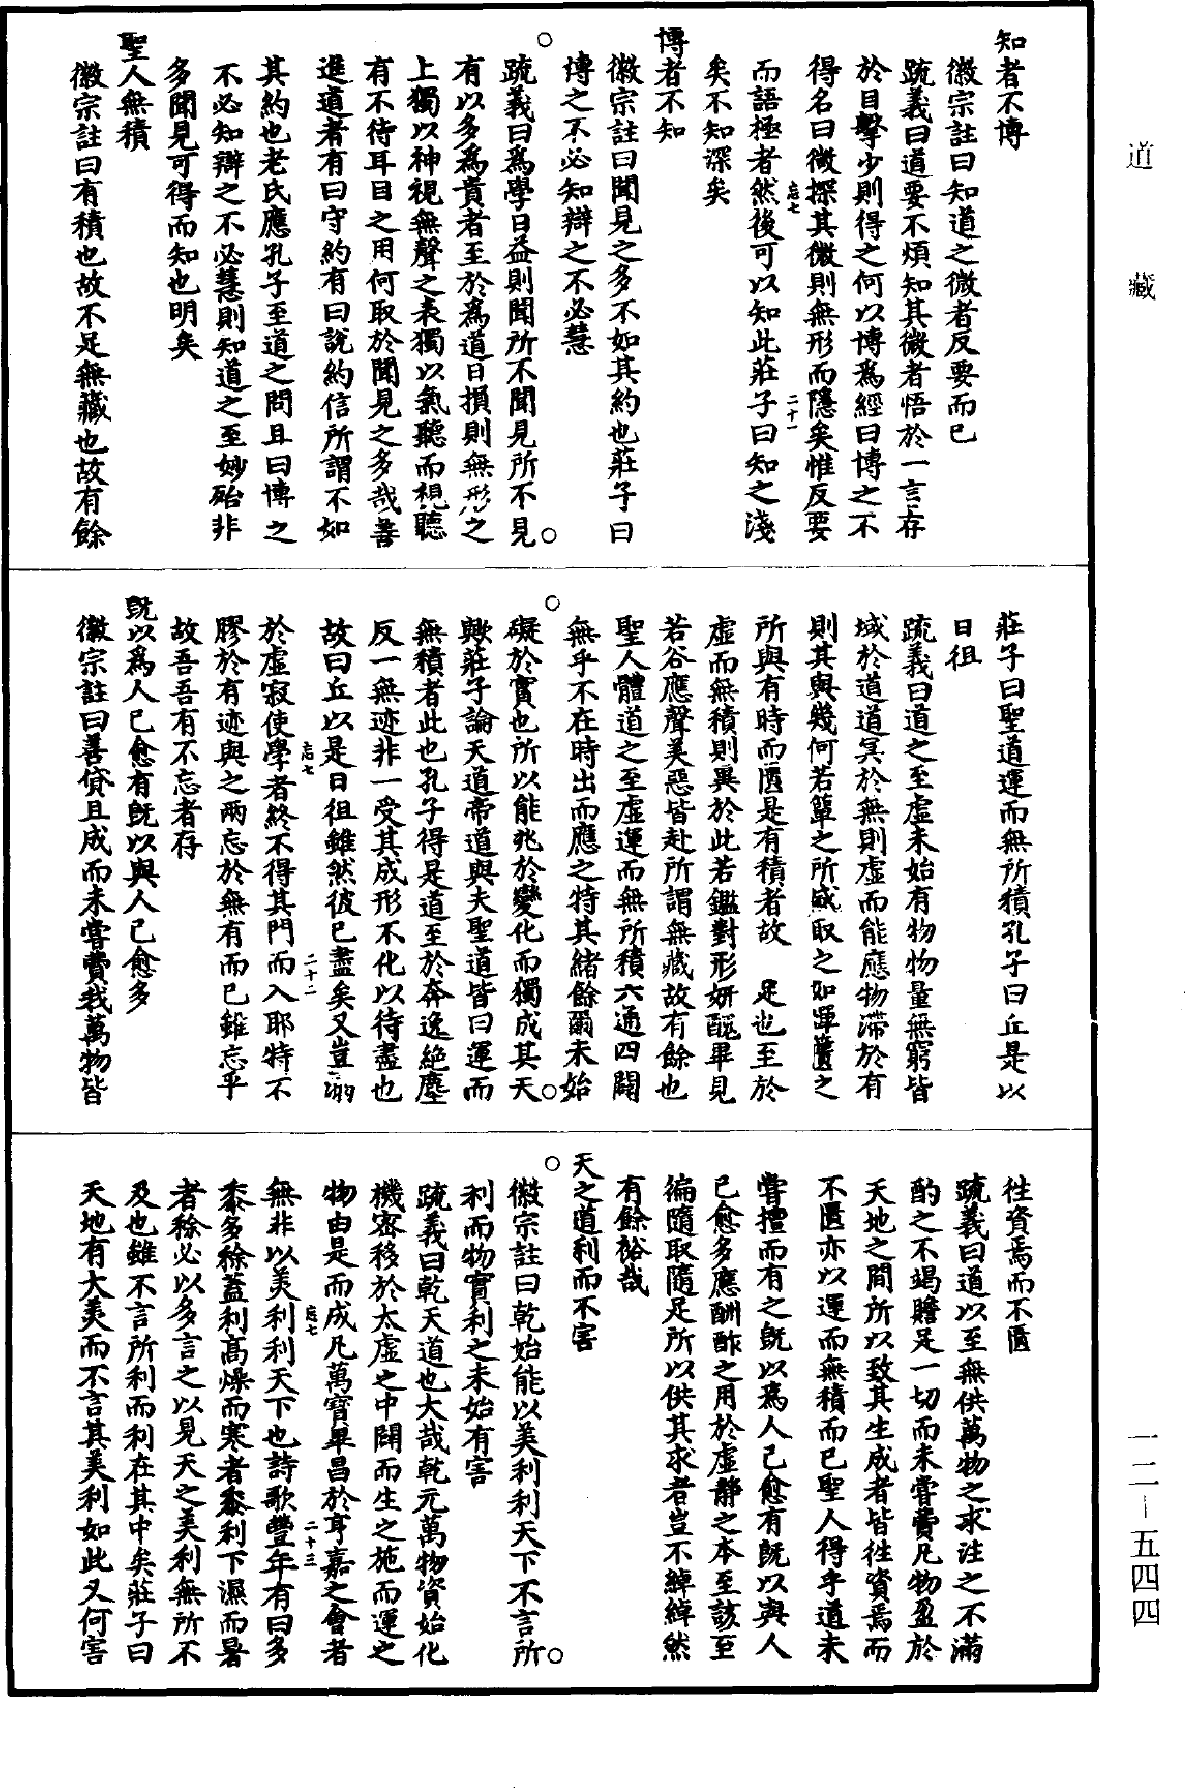 道藏
知者不博
徽宗註曰知道之微者反要而已
疏義曰道要不煩知其微者悟於一言存
於目擊少則得之何以博爲經曰博之不
得名曰微探其微則無形而隱矣惟反要
而語極者然後可以知此莊子曰知之淺
矣不知深矣
博者不知
徽宗註曰聞見之多不如其約也莊子曰
博之不必知辯之不必慧
疏義曰爲學日益則聞所不聞見所不見
有以多爲貴者至於爲道日損則無形之
上獨以神視無聲之表獨以氣聽而視聽
有不待耳目之用何取於聞見之多哉善
進道者有曰守約有曰說約信所謂不如
其約也老氏應孔子至道之問且曰博之
不必知辯之不必慧則知道之至妙殆非
多聞見可得而知也明矣
聖人無積
徽宗註曰有積也故不足無藏也故有餘
莊子曰聖道運而無所積孔子曰丘是以
日徂
疏義曰道之至虛未始有物物量無窮皆
域於道道冥於無則虛而能應物滯於有
則其與幾何若簞之所盛取之如渾匱之
所與有時而匱是有積者故 足也至於
虛而無積則異於此若鑑對形妍醜畢見
若谷應聲美惡皆赴所謂無藏故有餘也
聖人體道之至虛運而無所積六通四闢
無乎不在時出而應之特其緒餘爾未始
礙於實也所以能兆於變化而獨成其天
歟莊子論天道帝道與夫聖道皆曰運而
無積者此也孔子得是道至於奔逸絕塵
反一無迹非一受其成形不化以待盡也
故曰丘以是日徂雖然彼已盡矣又豈溺
於虛寂使學者終不得其門而入耶特不
膠於有迹與之兩忘於無有而已雖忘乎
故吾吾有不忘者存
既以爲人己愈有既以與人己愈多
徽宗註曰善貸且成而未嘗費我萬物皆
往資焉而不匱
疏義曰道以至無供萬物之求注之不滿
酌之不竭贍足一切而未嘗費凡物盈於
天地之間所以致其生成者皆往資焉而
不匱亦以運而無積而已聖人得乎道未
嘗擅而有之既以爲人己愈有既以與人
己愈多應酬酢之用於虛靜之本至該至
徧隨取隨足所以供其求者豈不綽綽然
有餘裕哉
天之道利而不害
徽宗註曰乾始能以美利利天下不言所
利而物實利之未始有害
疏義曰乾天道也大哉乾元萬物資始化
機密移於太虛之中闢而生之施而運之
物由是而成凡萬寶畢昌於亨嘉之會者
無非以美利利天下也詩歌豐年有曰多
黍多稌蓋利高燥而寒者黍利下濕而暑
者稌必以多言之以見天之美利無所不
及也雖不言所利而利在其中矣莊子曰
天地有大美而不言其美利如此又何害
忘七
二十一
忘七
二十二
忘七
二十三
一二—五四四